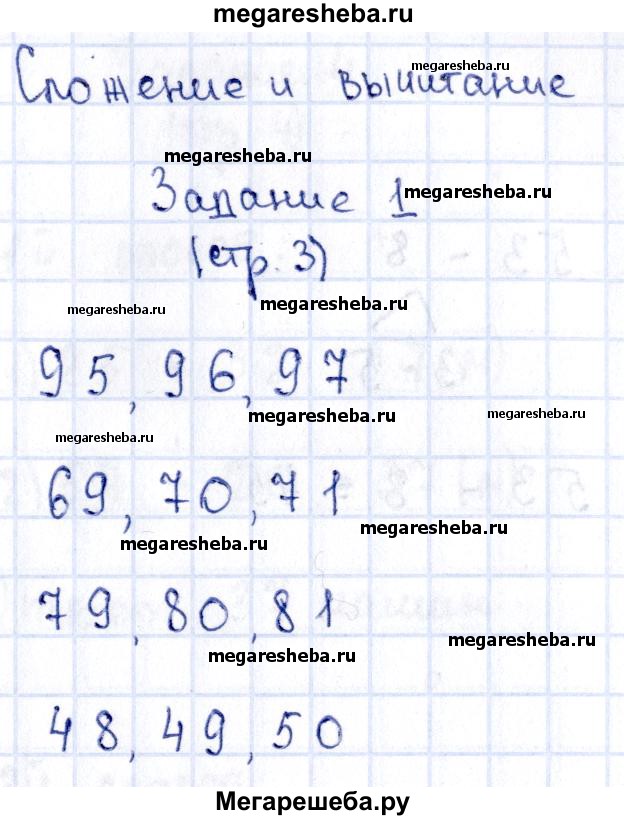 megaresheba.ru
megaresheba.ru
Сложение и вычитание
megaresheba.ru
Задание 1 megaresheba.ru
(стр. 3)
megaresheba.ru megaresheba.ru
95, 96, 97
megaresheba.ru megaresheba.ru
megaresheba.ru
69, 70, 71
megaresheba.ru
megaresheba.ru
79, 80, 81
megaresheba.ru
megaresheba.ru
48, 49, 50
Мегарешеба.ру